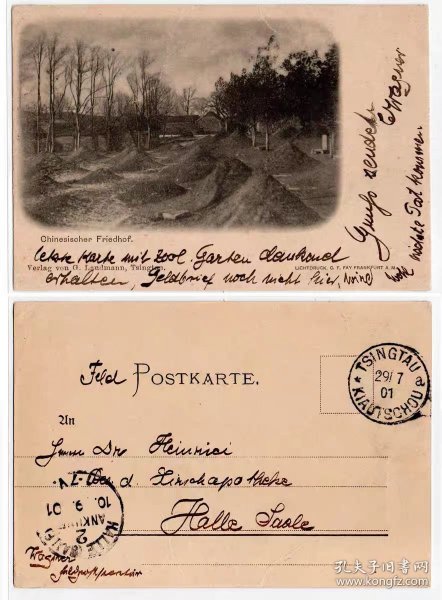 Chinesischer Friedhof.
letzte Karte mit zool. Garten dankend
Verlag von G. Landmann, Tsingtau.
LICHTDRUCK, G. F. FAY FRANKFURT A. M.
erhalten, Feldbrief noch nicht hier, wird
wohl nichts Tat kommen
Gruß sendet
EWagner
Feld POSTKARTE.
TSINGTAU a
29/7
01
* KIAUTSCHOU *
An
Herrn Dr. Heinrici
d. Hirschapotheke
Halle Saale
HALLE (SAALE)
2
ANKUNFT
10. 9. 01
V
Wagner
Feldpostsekretär
孔夫子旧书网
www.kongfz.com